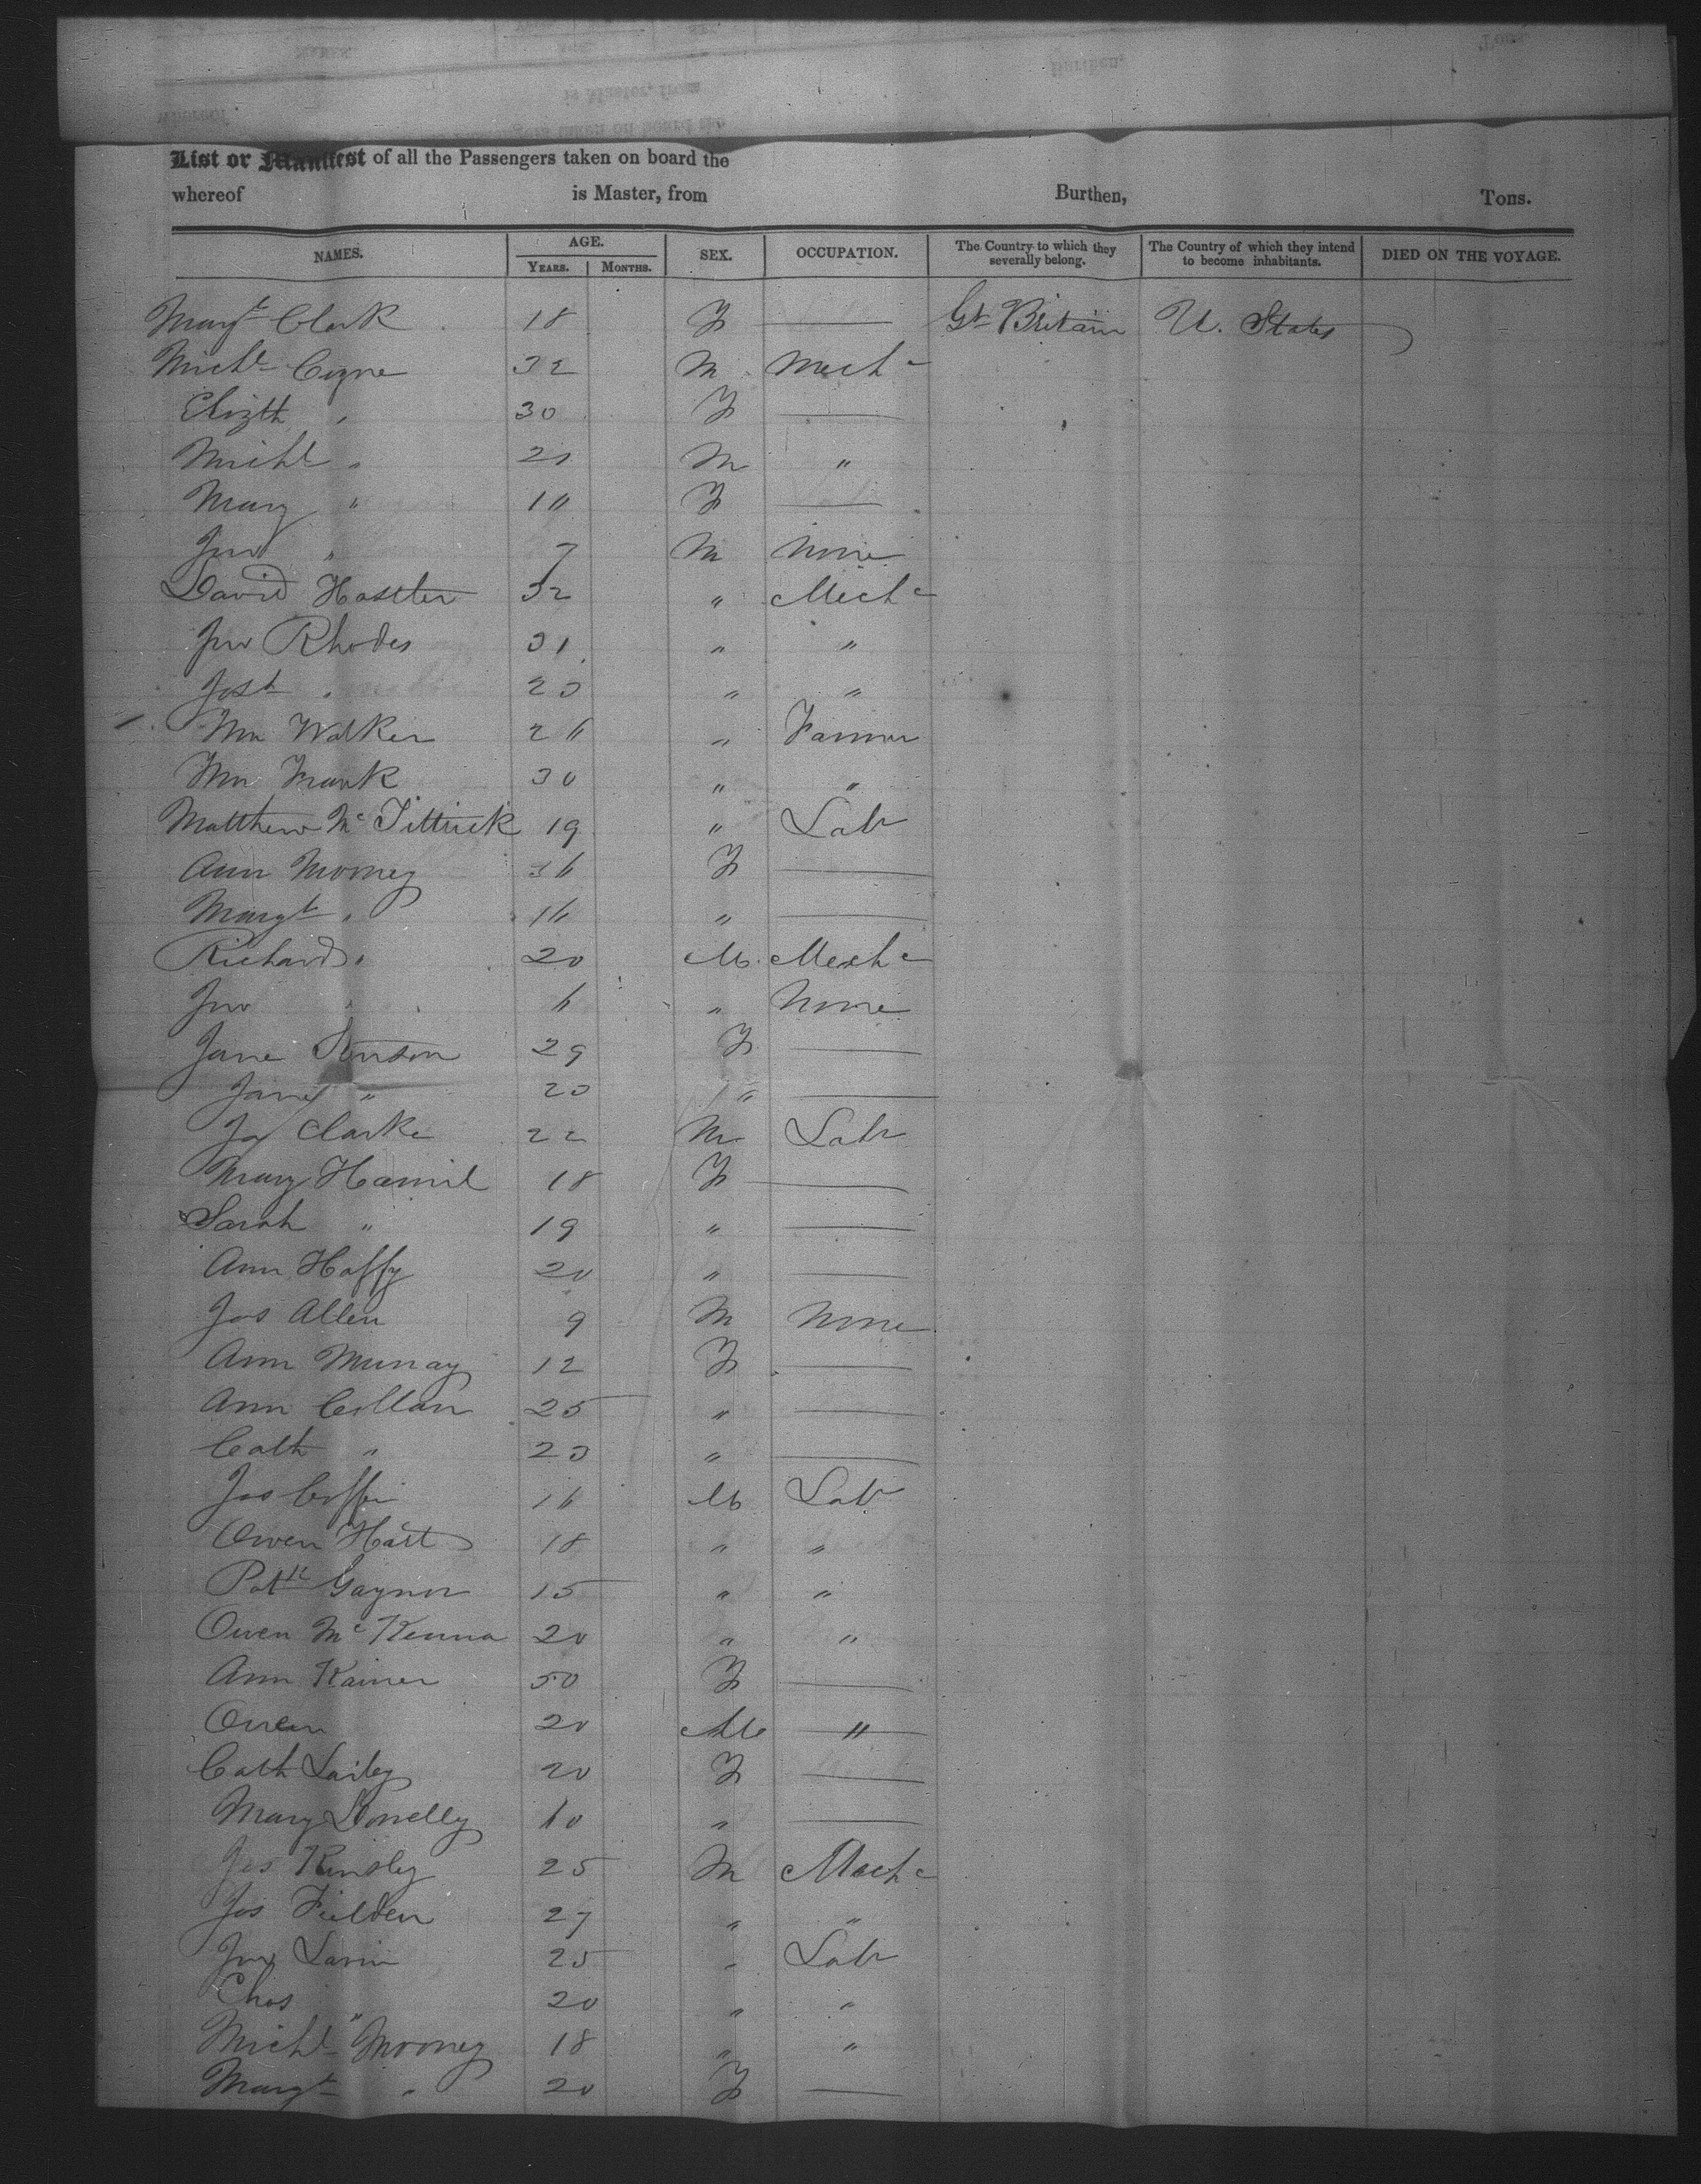 List or Manifest of all the Passengers taken on board the
whereof is Master, from Burthen, Tons.
NAMES. AGE. YEARS. MONTHS. SEX. OCCUPATION. The Country to which they severally belong. The Country of which they intend to become inhabitants. DIED ON THE VOYAGE.
Margt Clark 18 F — Gt Britain U. States
Michl Coyne 32 M Mechc
Elizth " 30 F —
Michl " 21 M "
Mary " 16 F —
Jno " 7 M None
David Hostler 32 " Mechc
Jno Rhodes 31 " "
Josh " 23 " "
Wm Walker 26 " Farmer
Wm Frank 30 " "
Matthew Mc Kittrick 19 " Labr
Ann Mooney 36 F —
Margt " 16 " —
Richard " 20 M Mechc
Jno " 6 " None
Jane 29 F —
Jane " 20 " —
Clarke 22 M Labr
Mary Hamil 18 F —
Sarah " 19 " —
Ann Haffy 20 " —
Jas Allen 9 M None
Ann Murray 12 F —
Ann Collan 25 " —
Cath " 23 " —
Jas 16 M Labr
Owen Hart 18 " "
Patk Gaynor 15 " "
Owen Mc Kenna 20 " "
Ann Kainer 50 F —
Owen 20 M "
Cath 20 F —
Mary Donelly 10 " —
Jas Kinsley 25 M Mechc
Jos Fielden 27 " "
Jno Lavin 25 " Labr
Chas " 20 " "
Michl Mooney 18 " "
Margt " 20 F —